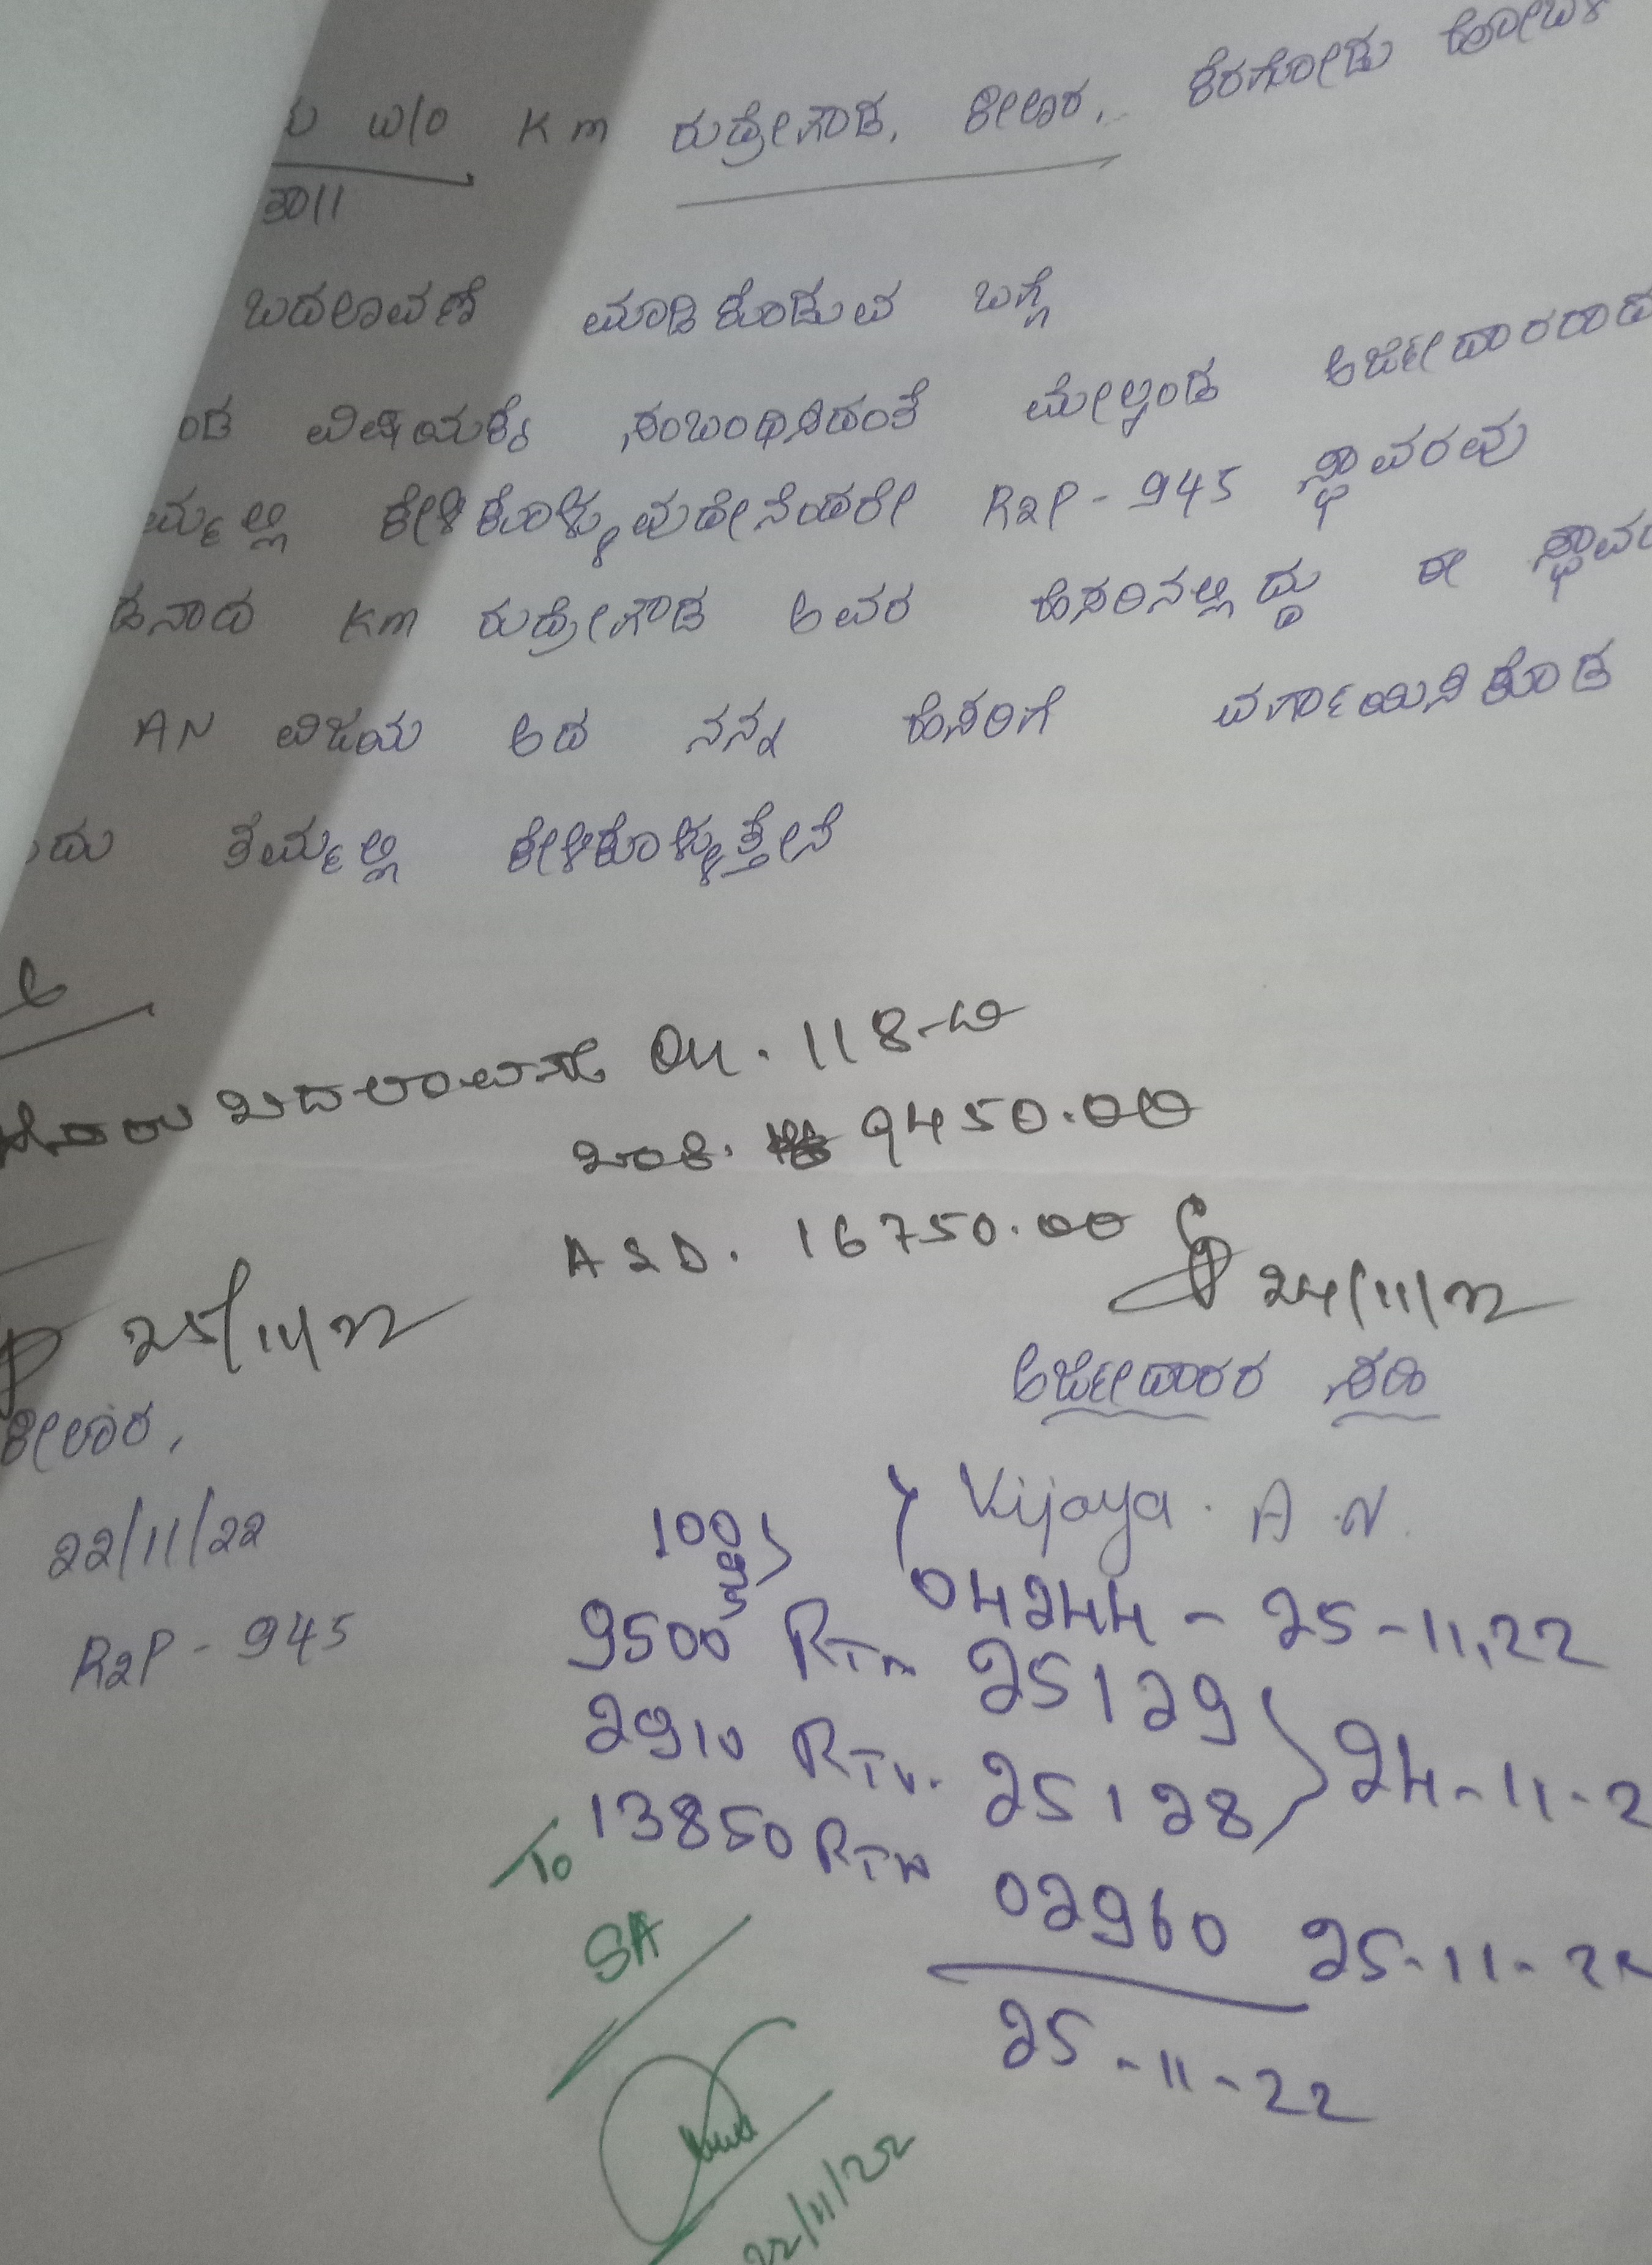 W/o Km ರುದ್ರೇಗೌಡ, ಕೀಲಾರ, ಕೆರಗೋಡು
ತಾ||
ಬದಲಾವಣೆ ಮಾಡಿಕೊಡುವ ಬಗ್ಗೆ
ವಿಷಯಕ್ಕೆ ಸಂಬಂಧಿಸಿದಂತೆ ಮೇಲ್ಕಂಡ ಅರ್ಜಿದಾರರಾದ
ಕೇಳಿಕೊಳ್ಳುವುದೇನೆಂದರೇ R2P-945 ಸ್ಥಾವರವು
Km ರುದ್ರೇಗೌಡ ಅವರ ಹೆಸರಿನಲ್ಲಿದ್ದು ಈ
AN ವಿಜಯ ಆದ ನನ್ನ ಹೆಸರಿಗೆ ವರ್ಗಾಯಿಸಿಕೊಡ
ತಮ್ಮಲ್ಲಿ ಕೇಳಿಕೊಳ್ಳುತ್ತೇನೆ
ಬದಲಾವಣೆ 118-00
ಬಾಕಿ. 9450.00
ASD. 16750.00
24/11/22
25/11/22
ಅರ್ಜಿದಾರರ ಸಹಿ
ಕೀಲಾರ,
Vijaya. A.N.
22/11/22
100
04244 - 25-11.22
R2P-945
9500 25129
2910 25128 24-11-2
13850 02960 25-11-22
To
SA
25-11-22
22/11/22